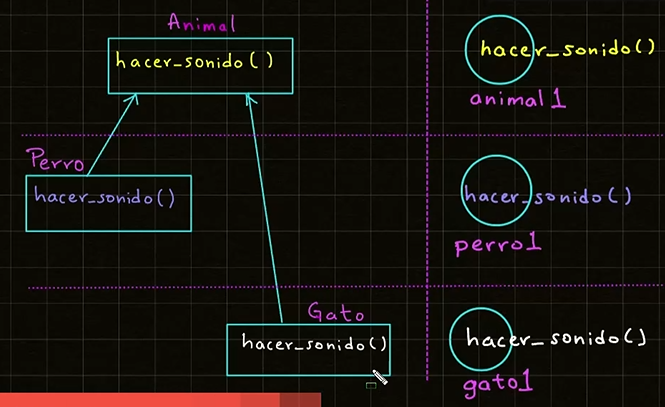 Animal
hacer_sonido()
Perro
hacer_sonido()
Gato
hacer_sonido()
hacer_sonido()
animal1
hacer_sonido()
perro1
hacer_sonido()
gato1